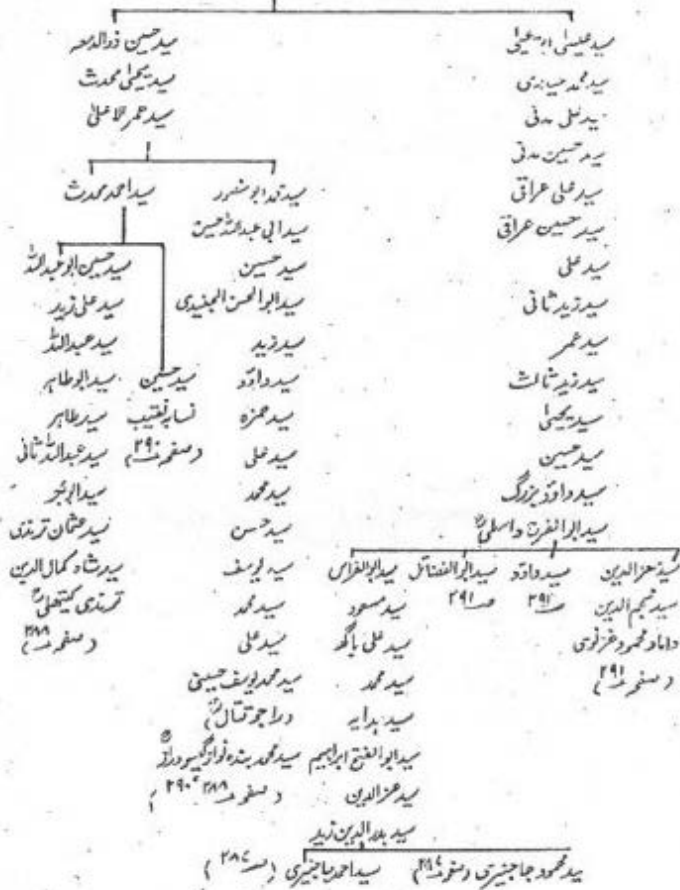 سید عیسیٰ ابو یحییٰ
سید محمد
سید علی مدنی
سید حسین مدنی
سید علی عراقی
سید حسین عراقی
سید علی
سید زید ثانی
سید عمر
سید زید ثالث
سید یحییٰ
سید حسین
سید داؤد بزرگ
سید ابوالفرح واسطیؒ
سید عزالدین
سید نجم الدین
داماد محمود غزنوی
(صفحہ ۲۹۱)
سید داؤد
سید ابوالفضائل
ص ۲۹۱
سید ابوالفراس
سید مسعود
سید علی
سید محمد
سید ہدایہ
سید ابوالفتح ابراہیم
سید عزالدین
سید بدرالدین زید
سید محمود جاجنیری (صفحہ ۲۸۷)
سید احمد جاجنیری (ص ۲۸۷)
سید حسین ذوالدمعہ
سید یحییٰ محدث
سید عمر الاعلیٰ
سید محمد ابو منصور
سید ابی عبداللہ حسین
سید حسین
سید ابوالحسن الجنیدی
سید زید
سید داؤد
سید حمزہ
سید علی
سید محمد
سید حسن
سید یوسف
سید محمد
سید علی
سید محمد یوسف حسینی
(راجو قتالؒ)
سید محمد بندہ نواز گیسودرازؒ
(صفحہ ۲۸۸ ۲۹۰)
سید احمد محدث
سید حسین
نسابہ نقیب
(صفحہ ۲۹۰)
سید حسین ابو عبداللہ
سید علی زید
سید عبداللہ
سید ابوطاہر
سید طاہر
سید عبداللہ ثانی
سید عثمان ترمذی
سید شاہ کمال الدین
ترمذی کیتھلیؒ
(صفحہ ۲۸۸)